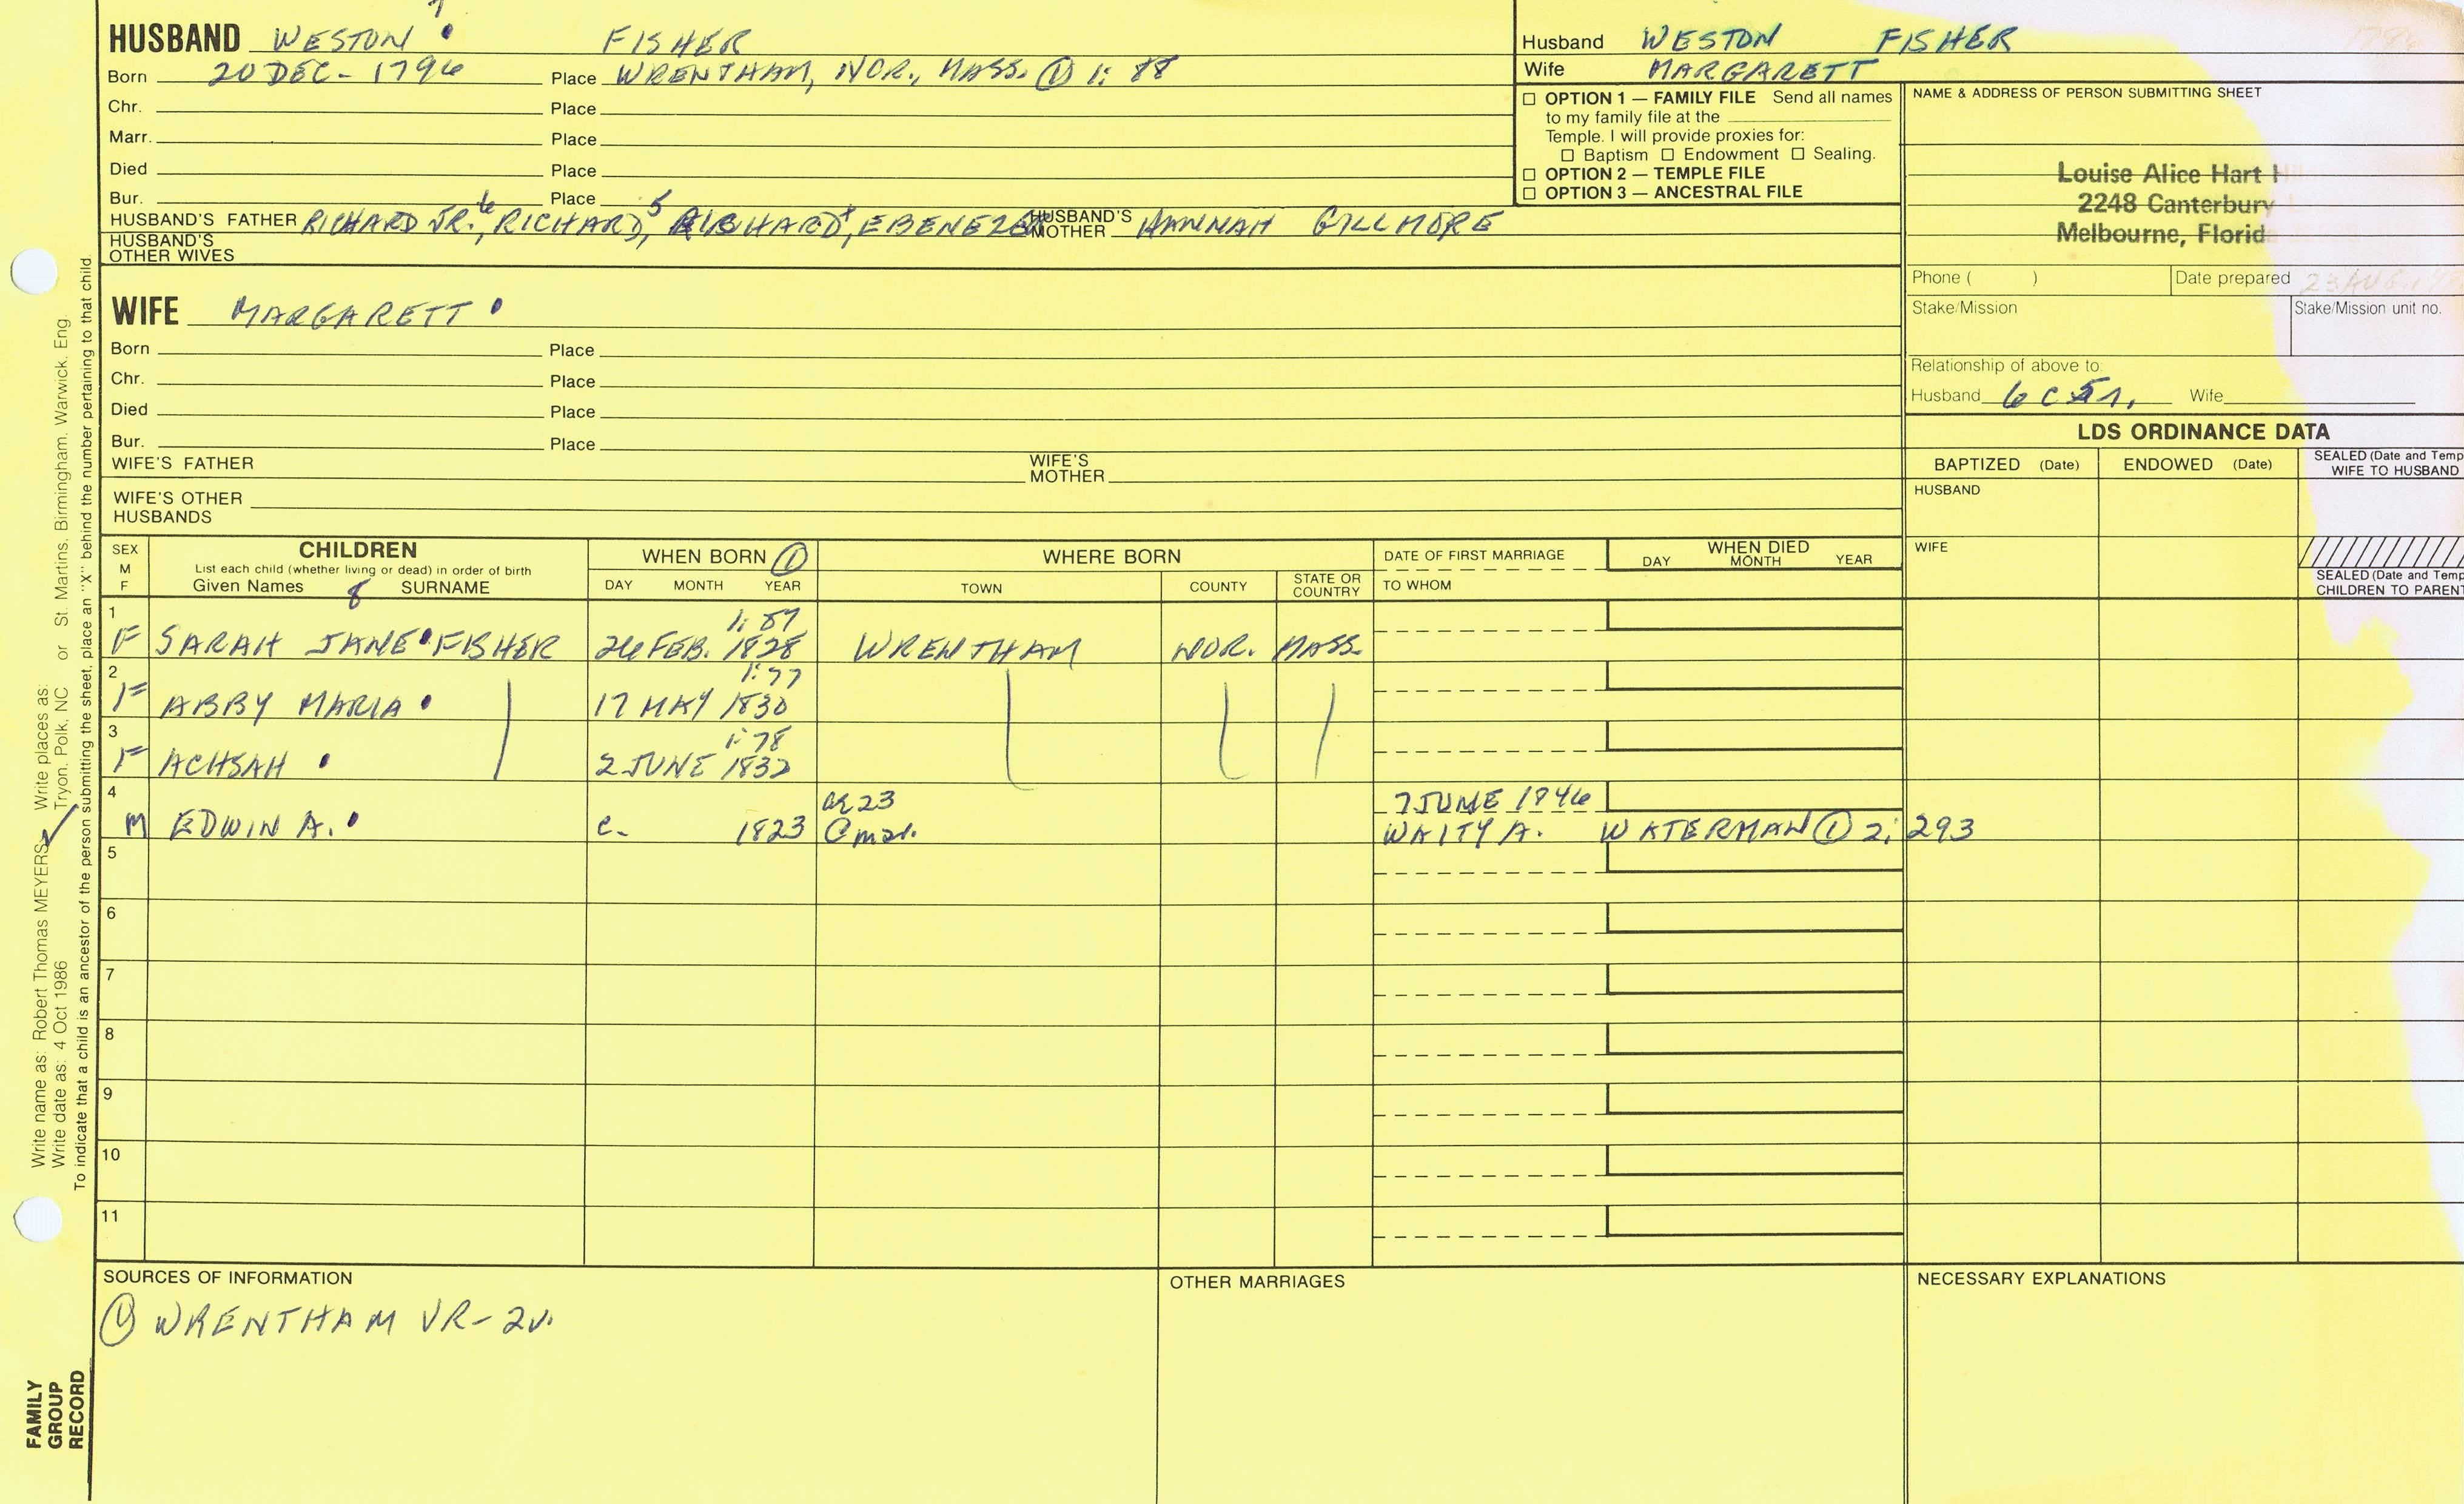 HUSBAND WESTON FISHER
Born 20 DEC - 1796 Place WRENTHAM, NOR., MASS. ① 1: 88
Chr. Place
Marr. Place
Died Place
Bur. Place
HUSBAND'S FATHER RICHARD JR.⁶, RICHARD⁵, RICHARD⁴, EBENEZER HUSBAND'S MOTHER HANNAH GILLMORE
HUSBAND'S OTHER WIVES
Husband WESTON FISHER
Wife MARGARETT
☐ OPTION 1 — FAMILY FILE Send all names
to my family file at the
Temple. I will provide proxies for:
☐ Baptism ☐ Endowment ☐ Sealing.
☐ OPTION 2 — TEMPLE FILE
☐ OPTION 3 — ANCESTRAL FILE
NAME & ADDRESS OF PERSON SUBMITTING SHEET
Louise Alice Hart
2248 Canterbury
Melbourne, Florid
Phone ( ) Date prepared 23 AUG
Stake/Mission Stake/Mission unit no.
Relationship of above to:
Husband 6 C Wife
WIFE MARGARETT
Born Place
Chr. Place
Died Place
Bur. Place
WIFE'S FATHER WIFE'S MOTHER
WIFE'S OTHER HUSBANDS
LDS ORDINANCE DATA
BAPTIZED (Date) ENDOWED (Date) SEALED (Date and Temp
WIFE TO HUSBAND
HUSBAND
WIFE
SEALED (Date and Temp
CHILDREN TO PARENT
SEX M F
CHILDREN
List each child (whether living or dead) in order of birth
Given Names 8 SURNAME
WHEN BORN ①
DAY MONTH YEAR
WHERE BORN
TOWN COUNTY STATE OR COUNTRY
DATE OF FIRST MARRIAGE
TO WHOM
WHEN DIED
DAY MONTH YEAR
1 1: 87
F SARAH JANE FISHER 26 FEB. 1828 WRENTHAM NOR. MASS.
2 1: 77
F ABBY MARIA 17 MAY 1830
3 1: 78
F ACHSAH 2 JUNE 1832
4 ae 23 7 JUNE 1846
M EDWIN A. c. 1823 @ mar. WAITY A. WATERMAN ① 2: 293
5
6
7
8
9
10
11
SOURCES OF INFORMATION
① WRENTHAM VR - 2v.
OTHER MARRIAGES
NECESSARY EXPLANATIONS
Write name as: Robert Thomas MEYERS Write places as: Tryon, Polk, NC or St. Martins, Birmingham, Warwick, Eng.
Write date as: 4 Oct 1986
To indicate that a child is an ancestor of the person submitting the sheet, place an "X" behind the number pertaining to that child.
FAMILY
GROUP
RECORD